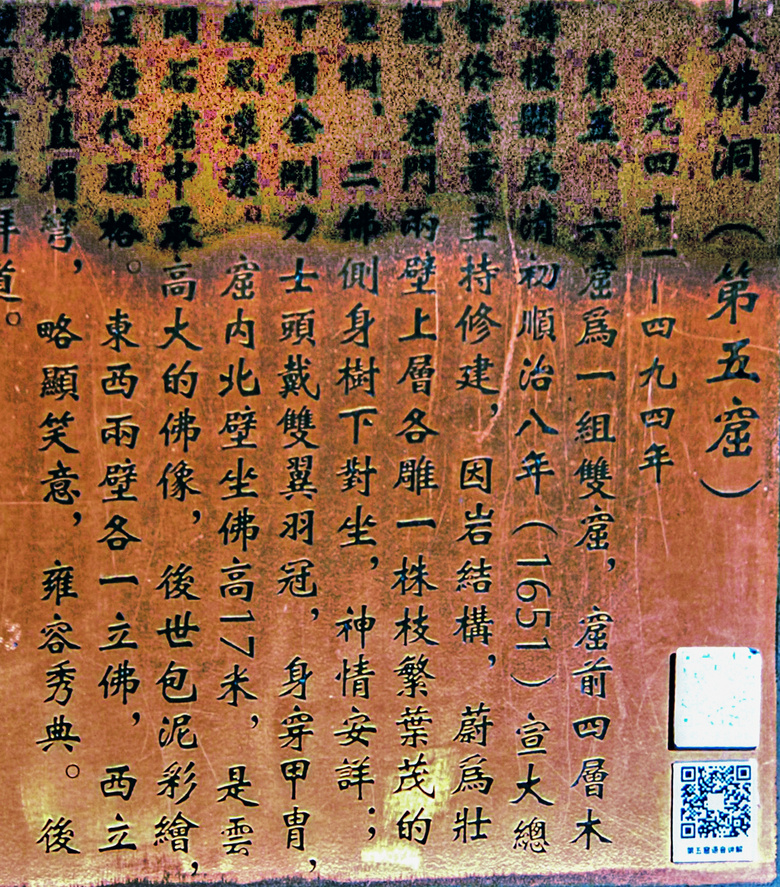 大佛洞（第五窟）
公元四七一—四九四年
第五、六窟爲一組雙窟，窟前四層木
構樓閣爲清初順治八年（1651）宣大總
督佟養量主持修建，因岩結構，蔚爲壯
觀。窟門兩壁上層各雕一株枝繁葉茂的
樹，二佛側身樹下對坐，神情安詳；
下層金剛力士頭戴雙翼羽冠，身穿甲冑，
威風凜凜。窟內北壁坐佛高17米，是雲
岡石窟中最高大的佛像，後世包泥彩繪，
呈唐代風格。東西兩壁各一立佛，西立
佛鼻直眉彎，略顯笑意，雍容秀典。後
有禮拜道。
第五窟语音讲解